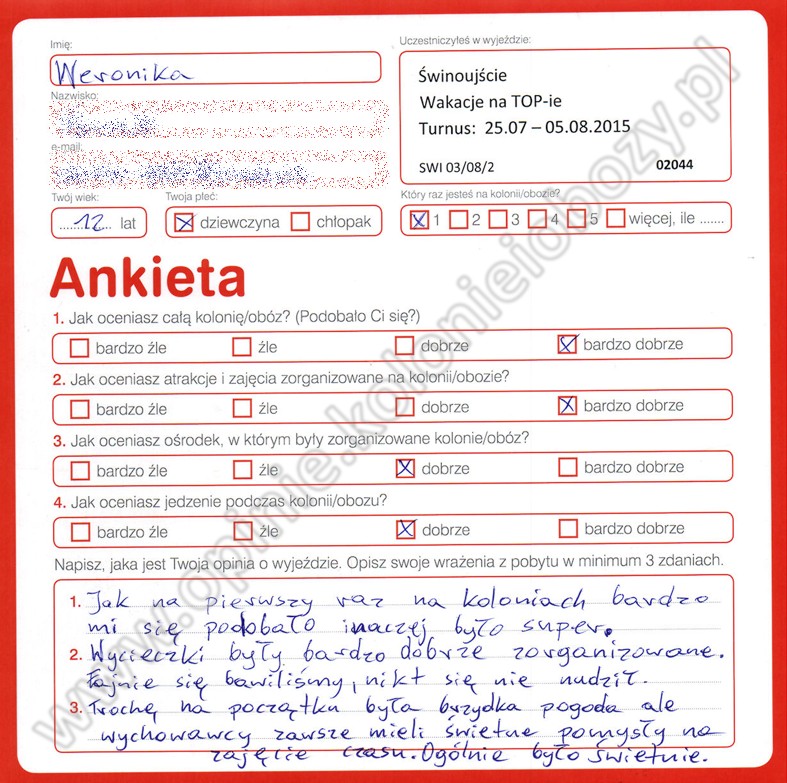 Imię:
Weronika
Nazwisko:
e-mail:
Twój wiek:
12 lat
Twoja płeć:
dziewczyna chłopak
Uczestniczyłeś w wyjeździe:
Świnoujście
Wakacje na TOP-ie
Turnus: 25.07 – 05.08.2015
SWI 03/08/2 02044
Który raz jesteś na kolonii/obozie?
1 2 3 4 5 więcej, ile .......
Ankieta
1. Jak oceniasz całą kolonię/obóz? (Podobało Ci się?)
bardzo źle źle dobrze bardzo dobrze
2. Jak oceniasz atrakcje i zajęcia zorganizowane na kolonii/obozie?
bardzo źle źle dobrze bardzo dobrze
3. Jak oceniasz ośrodek, w którym były zorganizowane kolonie/obóz?
bardzo źle źle dobrze bardzo dobrze
4. Jak oceniasz jedzenie podczas kolonii/obozu?
bardzo źle źle dobrze bardzo dobrze
Napisz, jaka jest Twoja opinia o wyjeździe. Opisz swoje wrażenia z pobytu w minimum 3 zdaniach.
1. Jak na pierwszy raz na koloniach bardzo
mi się podobało inaczej było super.
2. Wycieczki były bardzo dobrze zorganizowane.
Fajnie się bawiliśmy, nikt się nie nudził.
3. Trochę na początku była brzydka pogoda ale
wychowawcy zawsze mieli świetne pomysły na
zajęcie czasu. Ogólnie było świetnie.
www.opinie.kolonieiobozy.pl